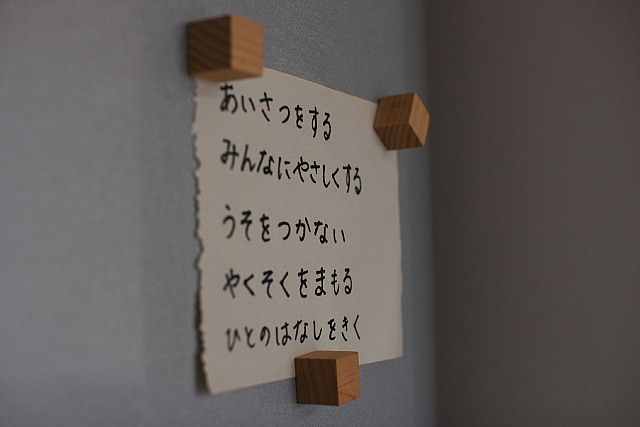 あいさつをする
みんなにやさしくする
うそをつかない
やくそくをまもる
ひとのはなしをきく